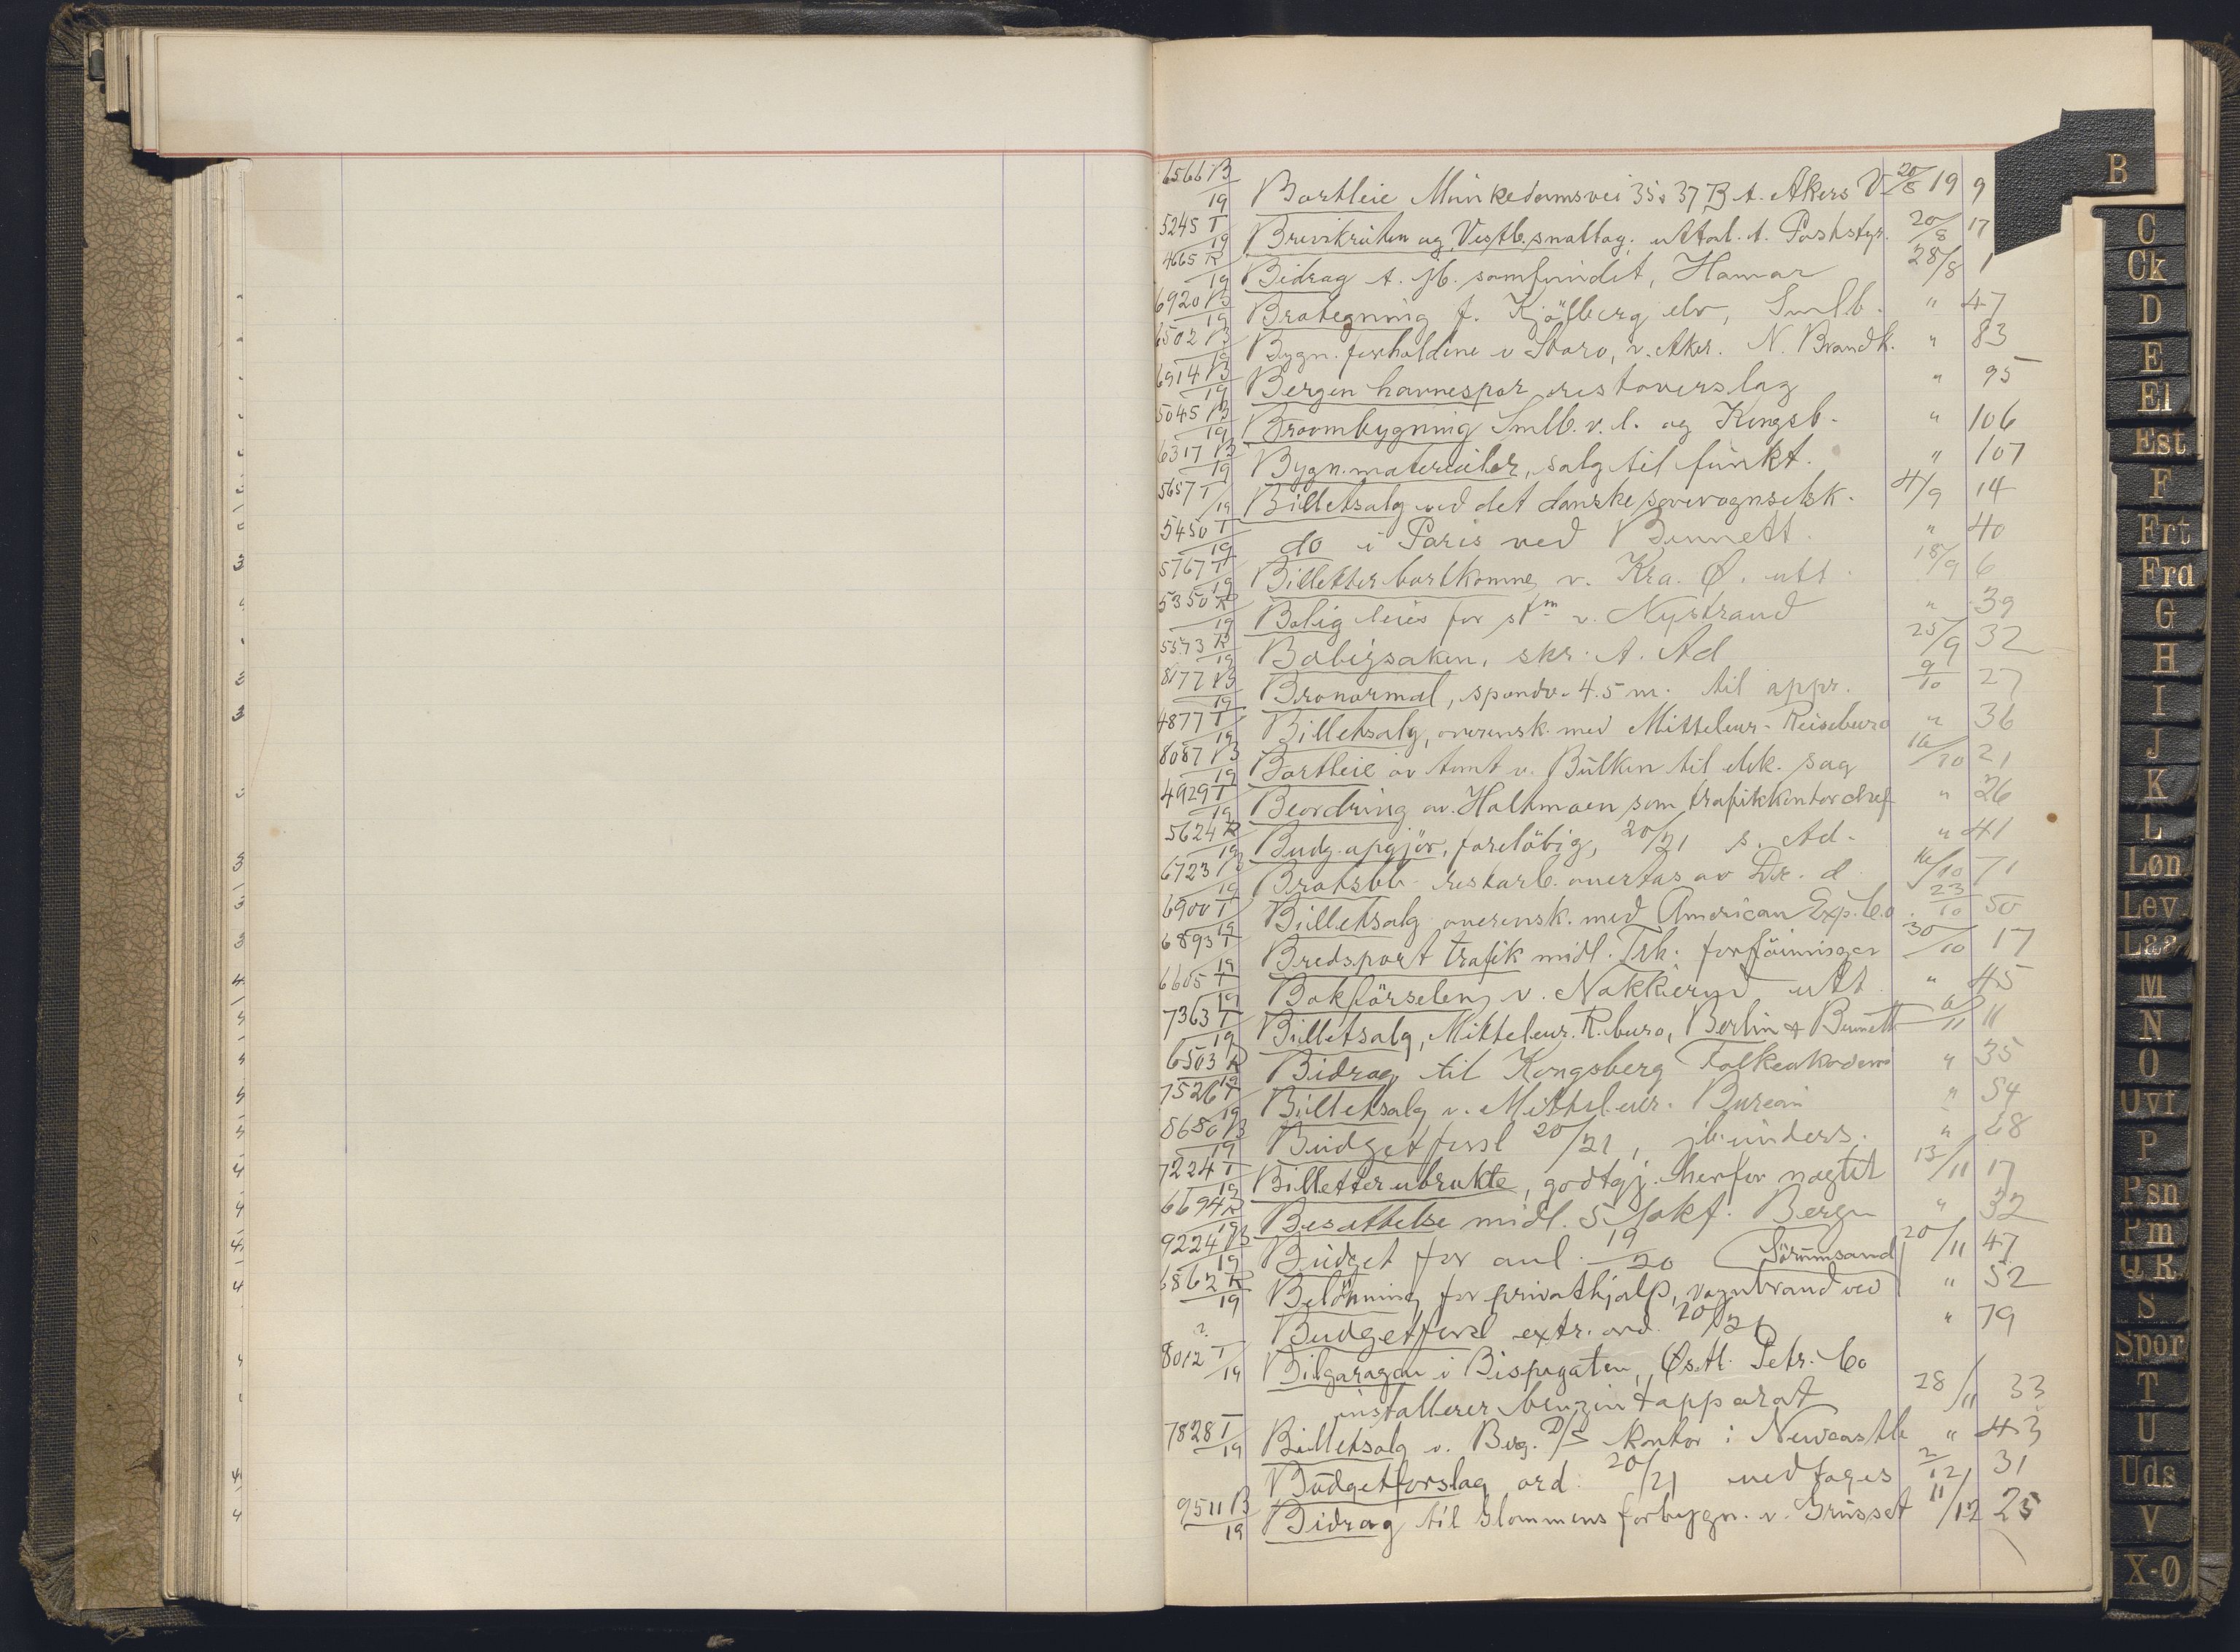 B
6566 B/19 Bortleie Munkedamsvei 35 o 37 B t. Akers V. 20/8 19 9
5245 T/19 Brevskruten og Vestb. snattog. uttal. t. Poststyr. 20/8 17
4665 R/19 Bidrag t. jb. samfundet, Hamar 28/8 1
6920 B/19 Brotegning f. Kjölberg elv, Smlb. " 47
6502 B/19 Bygn. forholdene v Storo, v. Aker. N. Brandk. " 83
6914 B/19 Bergen havnespor restoverslag " 95
5045 B/19 Broombygning Smlb. v. l. og Kongsb. " 106
6317 B/19 Bygn. materialer, salg til funkt. " 107
5657 T/19 Billetsalg ved det danske sovevognselsk. 4/9 14
5450 T/19 do i Paris ved Bennett. " 40
5767 T/19 Billetter bortkomne v. Kra. Ø. utt. 18/9 6
5350 R/19 Bolig leies for stm v. Nystrand " 39
5573 R/19 Boligsaken, skr. t. Ad 25/9 32
8177 B/19 Bronormal, spændv. 4.5 m. til appr. 9/10 27
4877 T/19 Billetsalg, overensk. med Mitteleur. Reisebureau " 36
8087 B/19 Bortleie av tomt v. Bulken til elek. sag 16/10 21
4929 T/19 Beordring av Haltmoen som trafikkontorchef " 26
5624 R/19 Budg. opgjör, foreløbig, 20/21 s. Ad. " 41
6723 B/19 Bratsbb. restarb. overtas av Dr. d. 16/10 71
6900 T/19 Billetsalg overensk. med American Exp. Co. 23/10 50
6893 T/19 Bredsport trafik midl. Trh. forföininger 30/10 17
6605 T/19 Bokförselen v. Nakkerud utt. " 45
7363 T/19 Billetsalg, Mitteleur. R. buro, Berlin & Bennett 6/11 11
6503 R/19 Bidrag til Kongsberg Folkeakademi " 35
7526 T/19 Billetsalg v. Mitteleur. Bureau " 54
8680 B/19 Budgetforsl 20/21, jb. unders. " 68
7224 T/19 Billetter ubrukte, godtgj. herfor nægtet 13/11 17
6694 R/19 Besættelse midl. S lokf. Bergen " 32
9224 B/19 Budget for anl. 19/20 20/11 47
Sörumsand
6862 R/19 Belönning for privathjælp, vognbrand ved " 52
? Budgetforsl extr. ord. 20/21 " 79
8012 T/19 Bilgaragen i Bispegaten, Østl. Petr. Co
installerer benzintapparat 28/11 33
7828 T/19 Billetsalg v. Berg. D/S kontor i Newcastle " 43
Budgetforslag ord. 20/21 vedtages 2/12 31
9511 B/19 Bidrag til Glommens forbygn. v. Grusset 11/12 25
C
Ck
D
E
El
Est
F
Frt
Fra
G
H
I
J
K
L
Løn
Lev.
Laa
M
N
O
Ovf
P
Psn
Pm
Q R
S
Spor
T
U
Uds
V
X-Ø